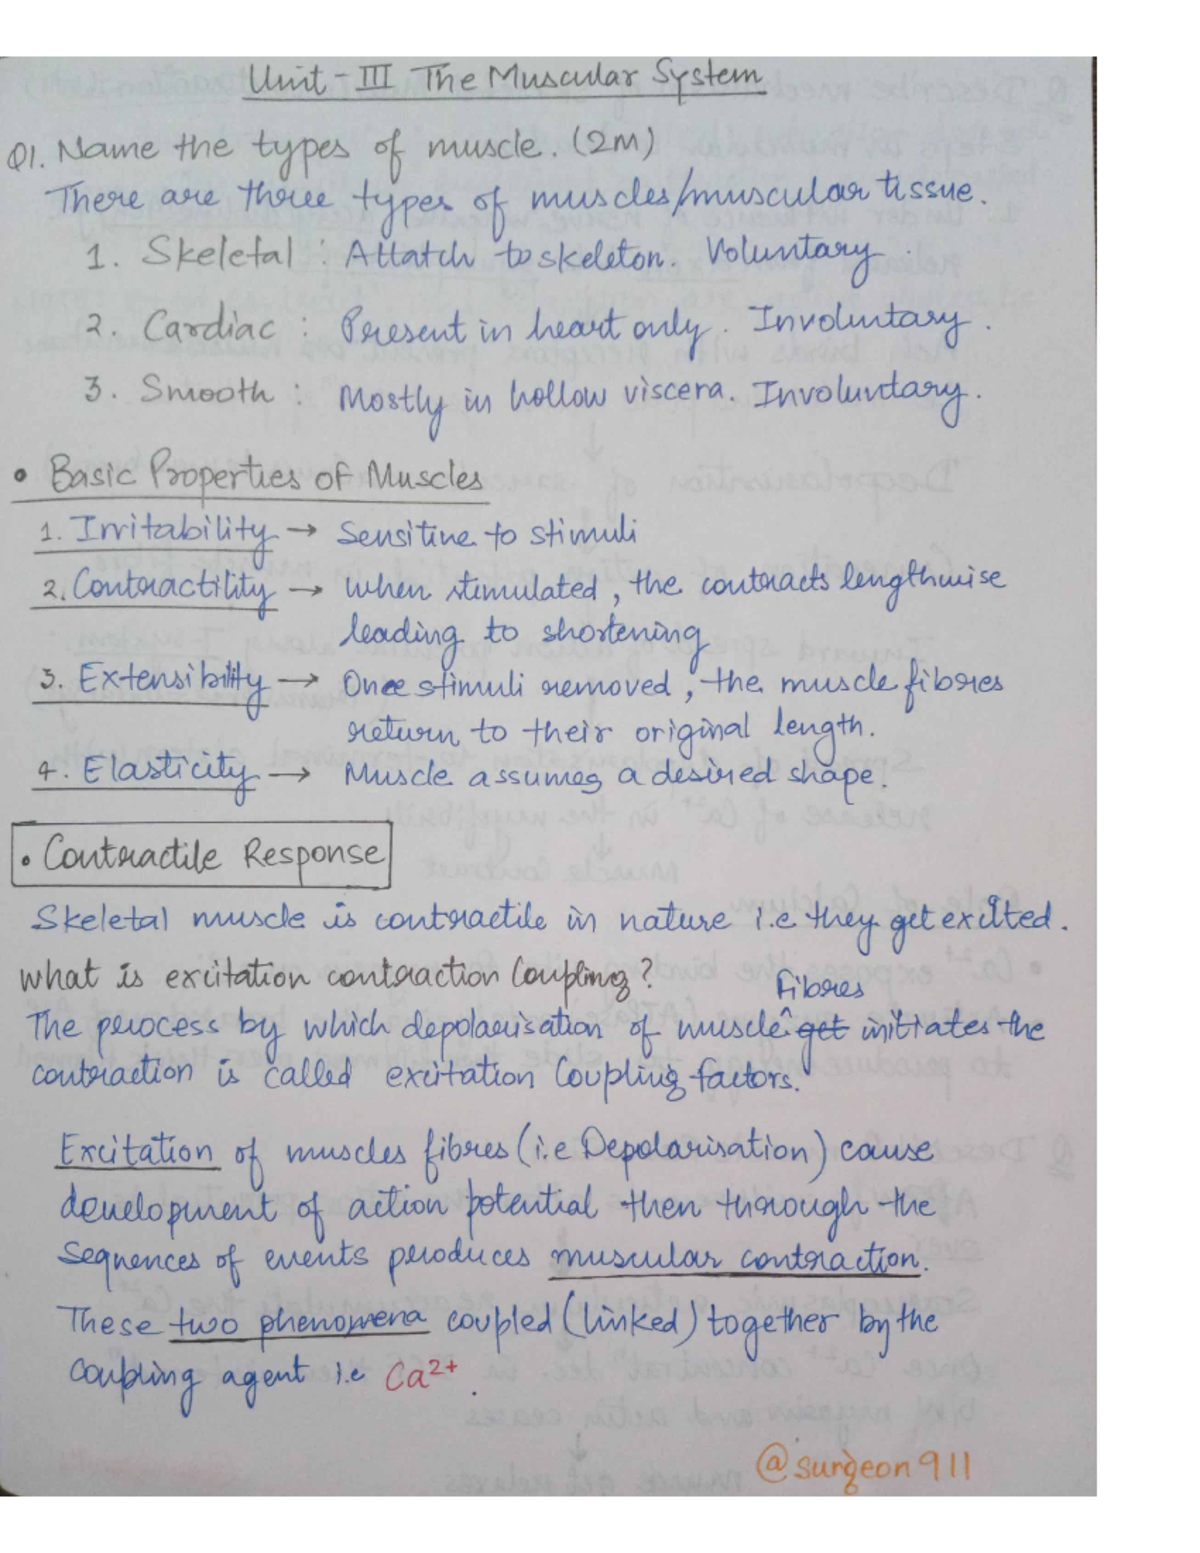 Unit - III The Muscular System
Q1. Name the types of muscle. (2M)
There are three types of muscles/muscular tissue.
1. Skeletal : Attatch to skeleton. Voluntary.
2. Cardiac : Present in heart only. Involuntary.
3. Smooth : Mostly in hollow viscera. Involuntary.
• Basic Properties of Muscles
1. Irritability → Sensitive to stimuli
2. Contractility → When stimulated, the contracts lengthwise
leading to shortening
3. Extensibility → Once stimuli removed, the muscle fibres
return to their original length.
4. Elasticity → Muscle assumes a desired shape.
• Contractile Response
Skeletal muscle is contractile in nature i.e they get excited.
What is excitation contraction Coupling?
Fibres
The process by which depolarisation of muscle ^ get initiates the
contraction is called excitation Coupling factors.
Excitation of muscles fibres (i.e Depolarisation) cause
development of action potential then through the
sequences of events produces muscular contraction.
These two phenomena coupled (linked) together by the
coupling agent i.e Ca2+.
@surgeon911